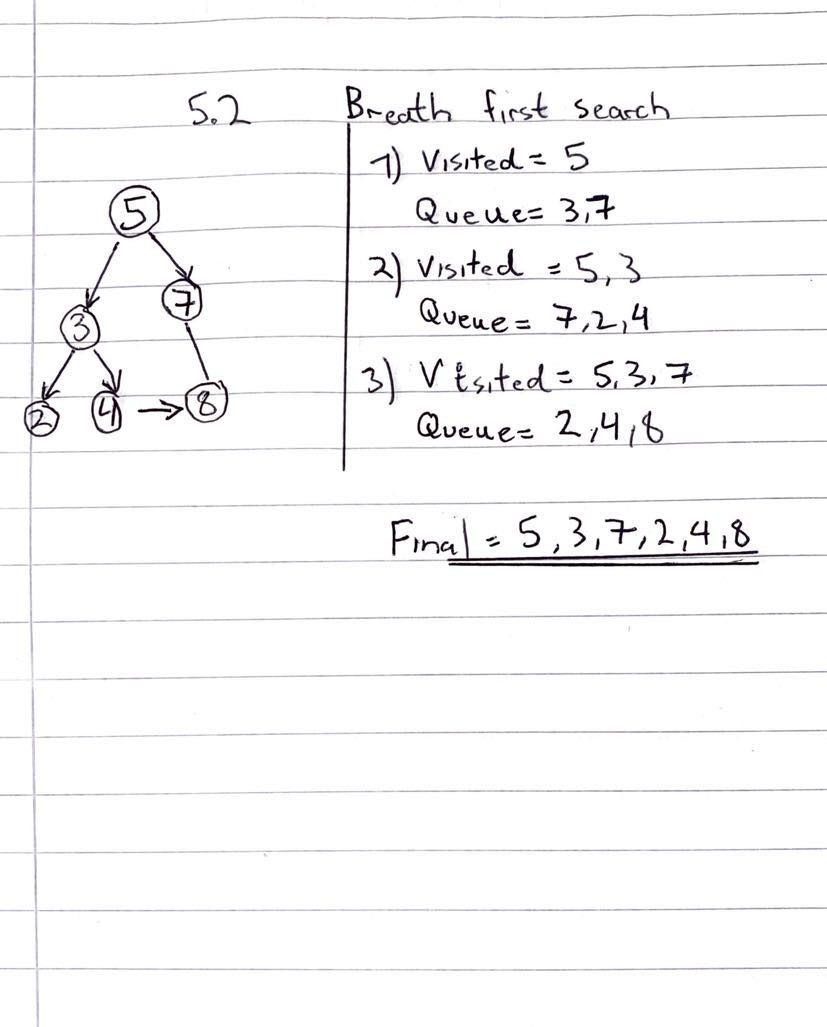 5.2
Breath first search
1) Visited = 5
Queue = 3,7
2) Visited = 5,3
Queue = 7,2,4
3) Visited = 5,3,7
Queue = 2,4,8
Final = 5,3,7,2,4,8
5
7
3
2 4 8